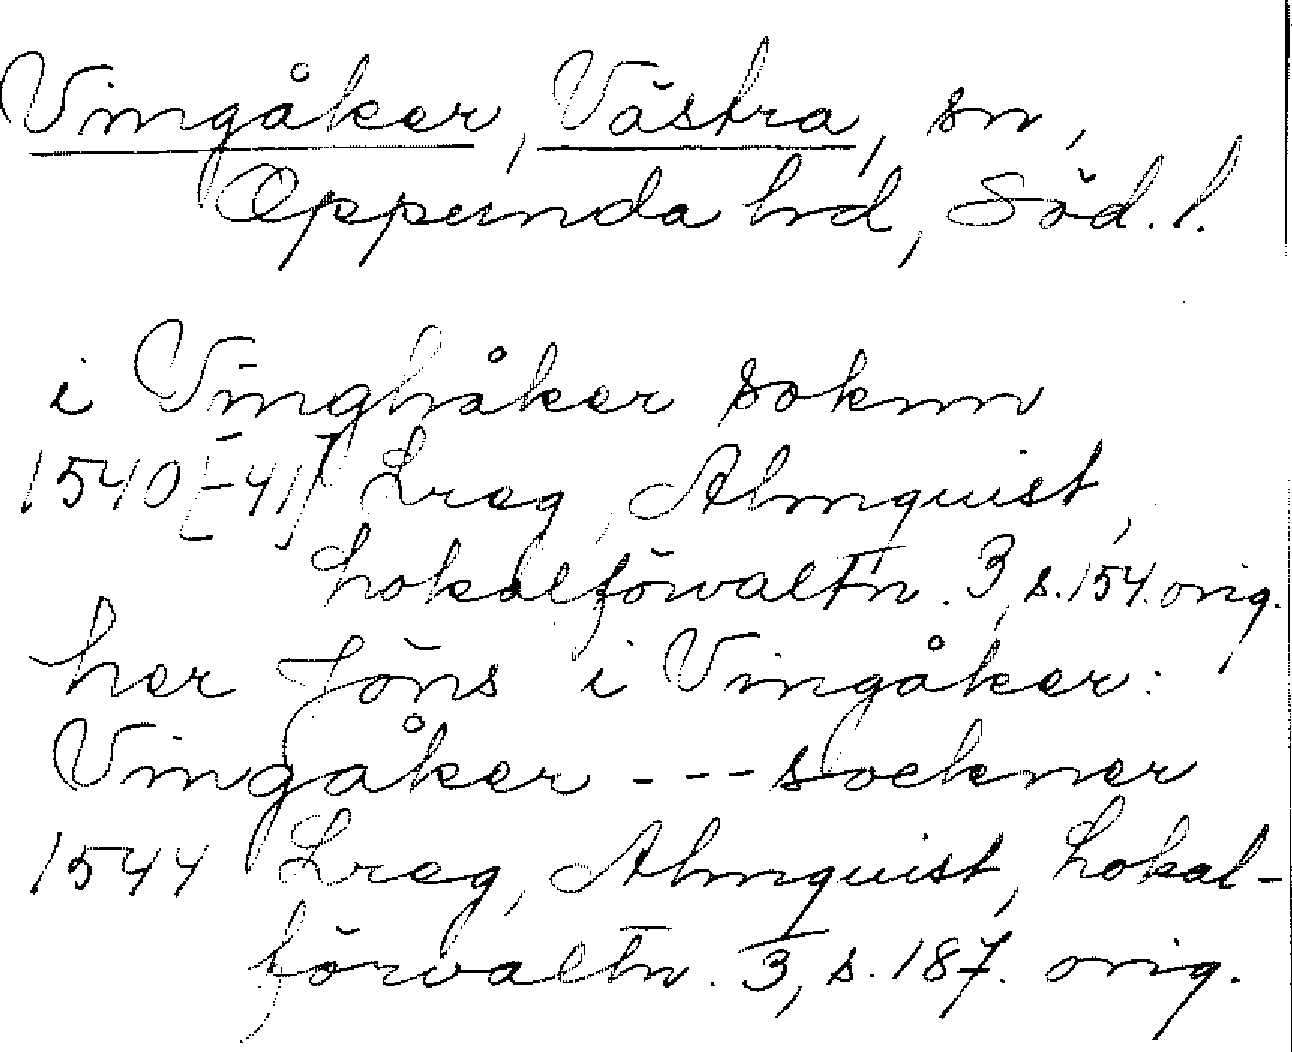 Vingåker, Västra, sn,
Oppunda hd, Söd. l.
i Vinghåker soknn
1540[-41] Lreg, Almquist,
Lokalförvaltn. 3, s. 154. orig.
her Jöns i Vingåker:
Vingåker --- sockner
1544 Lreg, Almquist, Lokal-
förvaltn. 3, s. 187. orig.